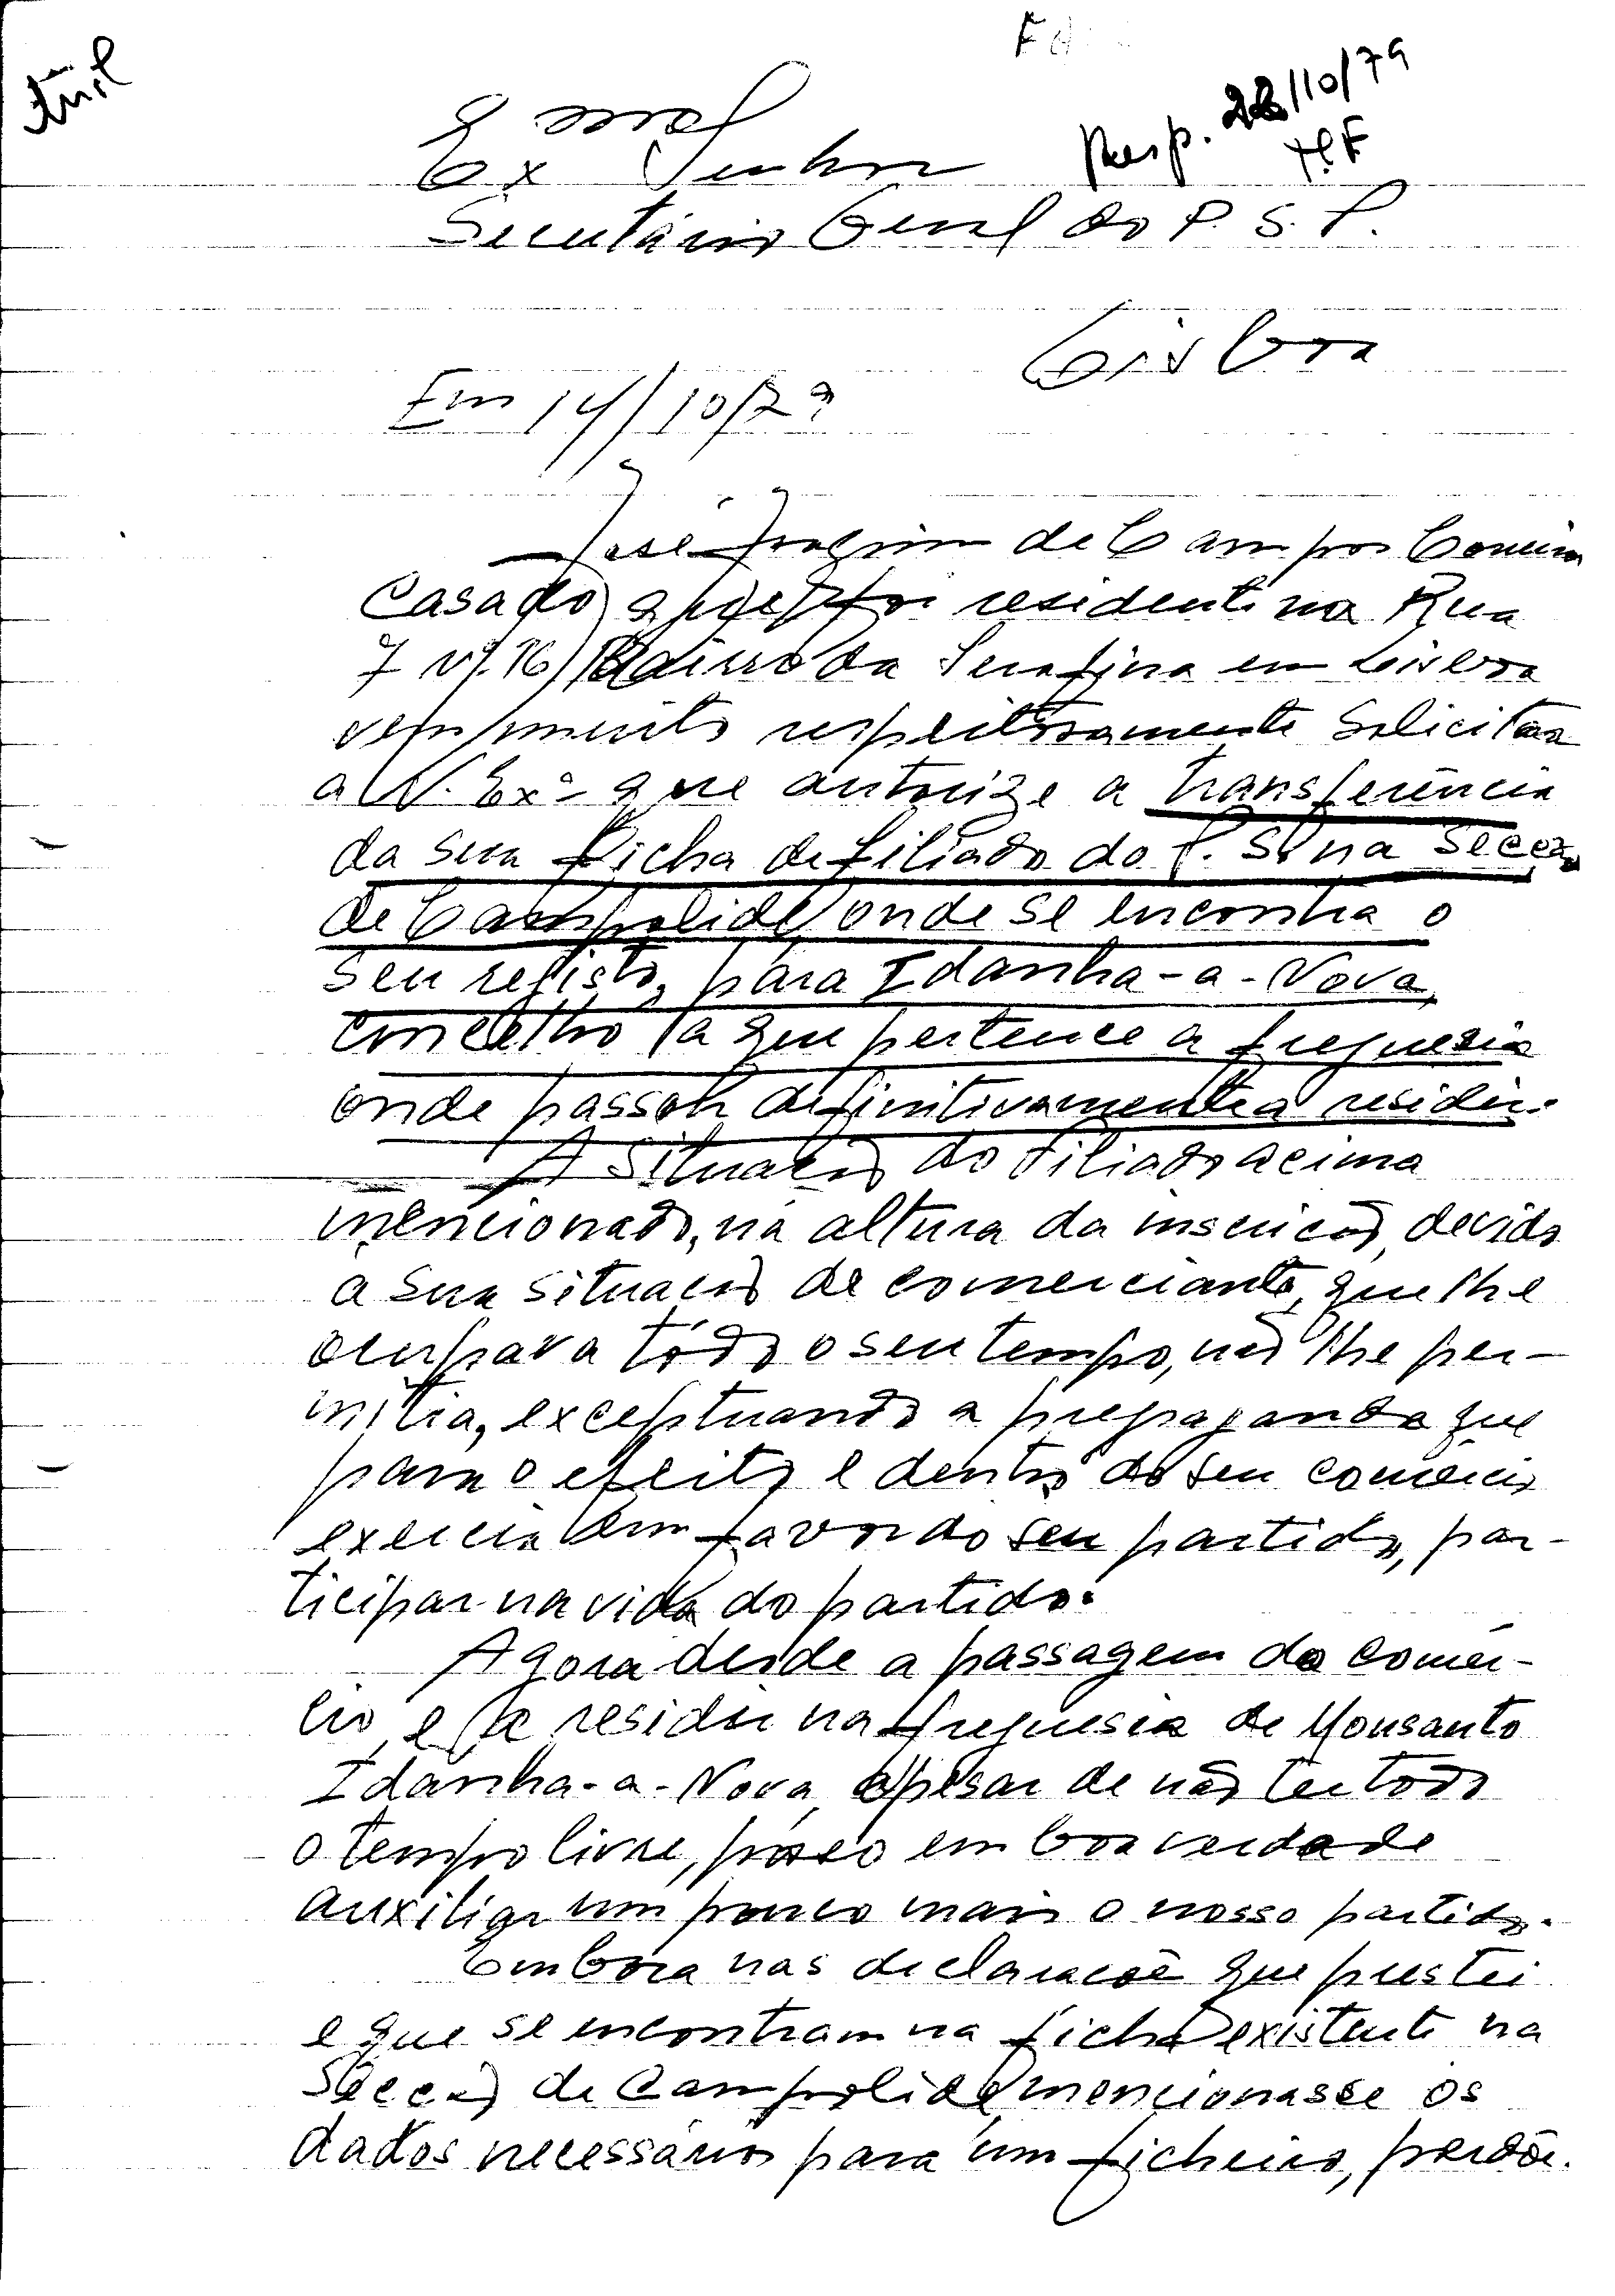 Resp. 22/10/79
Ex Senhor
Secretário Geral do P. S. P.
Lisboa
Em 14/10/79
José Joaquim de Campos Correia
Casado residente na Rua
7 nº 16 Bairro da Serafina em Lisboa
vem muito respeitosamente Solicitar
a V. Exª que autorize a transferência
da sua ficha de filiado do P. S. na Secção
de Campolide onde se encontra o
seu registo, para Idanha-a-Nova,
concelho a que pertence a freguesia
onde passou definitivamente a residir.
A Situação do filiado acima
mencionado, na altura da inscrição, devido
a sua situação de comerciante, que lhe
ocupava todo o seu tempo, não lhe per-
mitia, exceptuando a propaganda que
para o efeito e dentro do seu comércio
exercia em favor do seu partido, par-
ticipar na vida do partido.
Agora desde a passagem do comér-
cio, e a residir na freguesia de Monsanto
Idanha-a-Nova, apesar de não ter todo
o tempo livre, posso em boa verdade
auxiliar um pouco mais o nosso partido.
Embora nas declarações que prestei
e que se encontram na ficha existente na
Secção de Campolide mencionasse os
dados necessários para um ficheiro, perdõe.